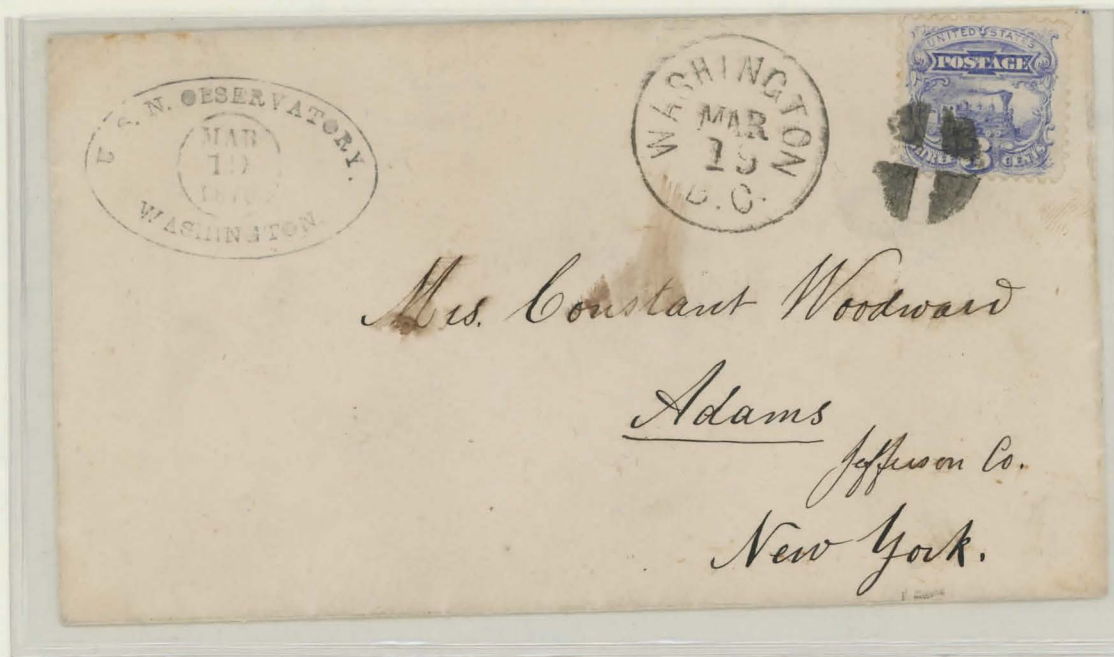 U. S. N. OBSERVATORY.
MAR
19
1870
WASHINGTON.
WASHINGTON
MAR
19
D.C.
UNITED STATES
POSTAGE
THREE 3 CENTS
Mrs. Constant Woodward
Adams
Jefferson Co.
New York.